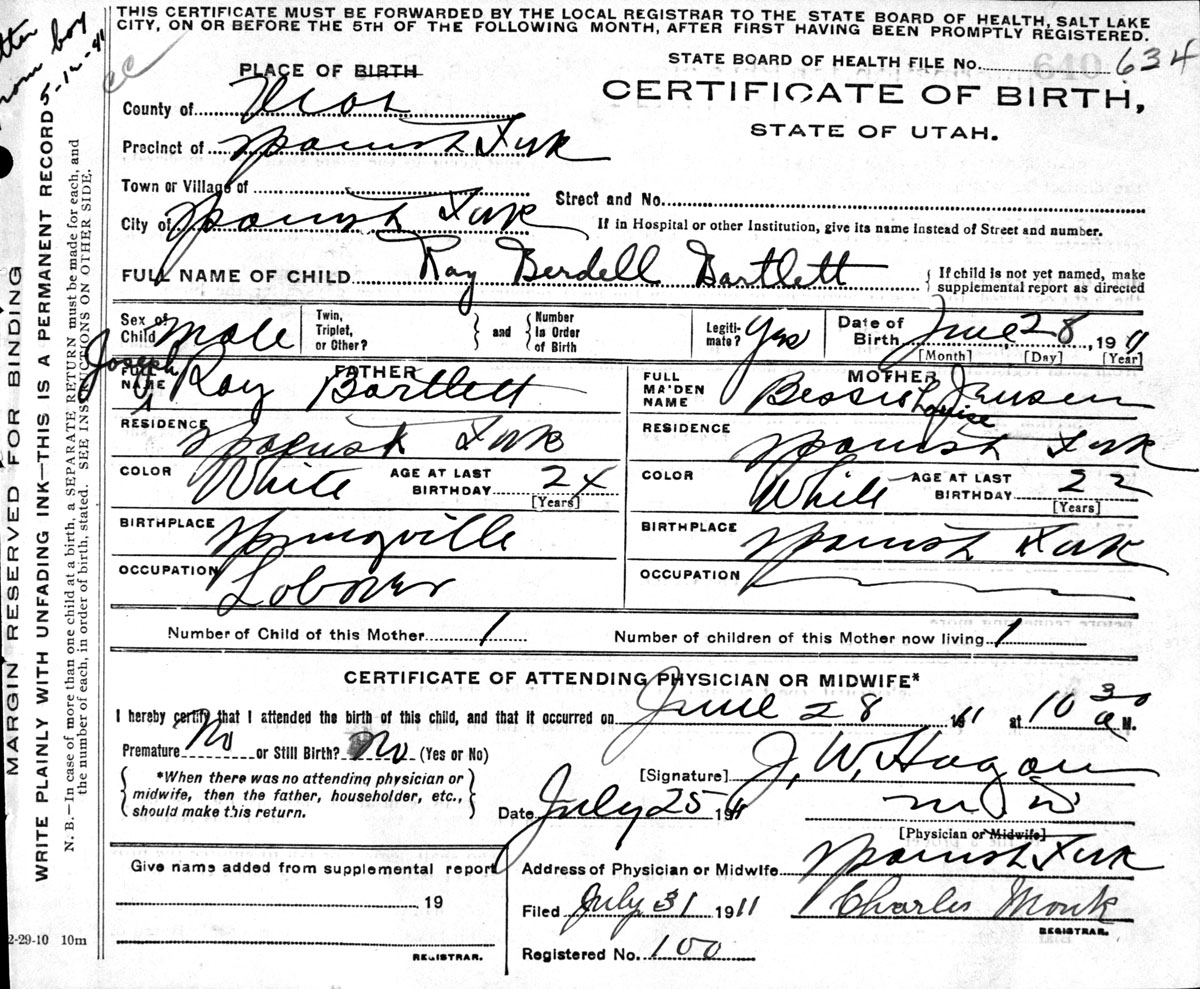 THIS CERTIFICATE MUST BE FORWARDED BY THE LOCAL REGISTRAR TO THE STATE BOARD OF HEALTH, SALT LAKE
CITY, ON OR BEFORE THE 5TH OF THE FOLLOWING MONTH, AFTER FIRST HAVING BEEN PROMPTLY REGISTERED.
STATE BOARD OF HEALTH FILE No. 634
PLACE OF BIRTH
CERTIFICATE OF BIRTH,
STATE OF UTAH.
County of Utah
Precinct of Spanish Fork
Town or Village of
Street and No.
City of Spanish Fork
If in Hospital or other Institution, give its name instead of Street and number.
FULL NAME OF CHILD Ray Berdell Bartlett
If child is not yet named, make supplemental report as directed
Sex of Child Male
Twin, Triplet, or Other? and Number in Order of Birth
Legiti-mate? Yes
Date of Birth June 28, 1911
[Month] [Day] [Year]
FATHER
FULL NAME Joseph Ray Bartlett
RESIDENCE Spanish Fork
COLOR White AGE AT LAST BIRTHDAY 24
[Years]
BIRTHPLACE Springville
OCCUPATION Laborer
MOTHER
FULL MAIDEN NAME Bessie Louise Jensen
RESIDENCE Spanish Fork
COLOR White AGE AT LAST BIRTHDAY 22
[Years]
BIRTHPLACE Spanish Fork
OCCUPATION
Number of Child of this Mother 1 Number of children of this Mother now living 1
CERTIFICATE OF ATTENDING PHYSICIAN OR MIDWIFE*
I hereby certify that I attended the birth of this child, and that it occurred on June 28 1911 at 10 30 a.M.
Premature No or Still Birth? No (Yes or No)
*When there was no attending physician or
midwife, then the father, householder, etc.,
should make this return.
[Signature] J. W. Hagan
Date July 25 1911 M D
[Physician or Midwife]
Give name added from supplemental report
19
REGISTRAR.
Address of Physician or Midwife Spanish Fork
Filed July 31 1911 Charles Monk
REGISTRAR.
Registered No. 100
2-29-10 10m
MARGIN RESERVED FOR BINDING
WRITE PLAINLY WITH UNFADING INK—THIS IS A PERMANENT RECORD
N. B.—In case of more than one child at a birth, a SEPARATE RETURN must be made for each, and
the number of each, in order of birth, stated. SEE INSTRUCTIONS ON OTHER SIDE.
5-12-41